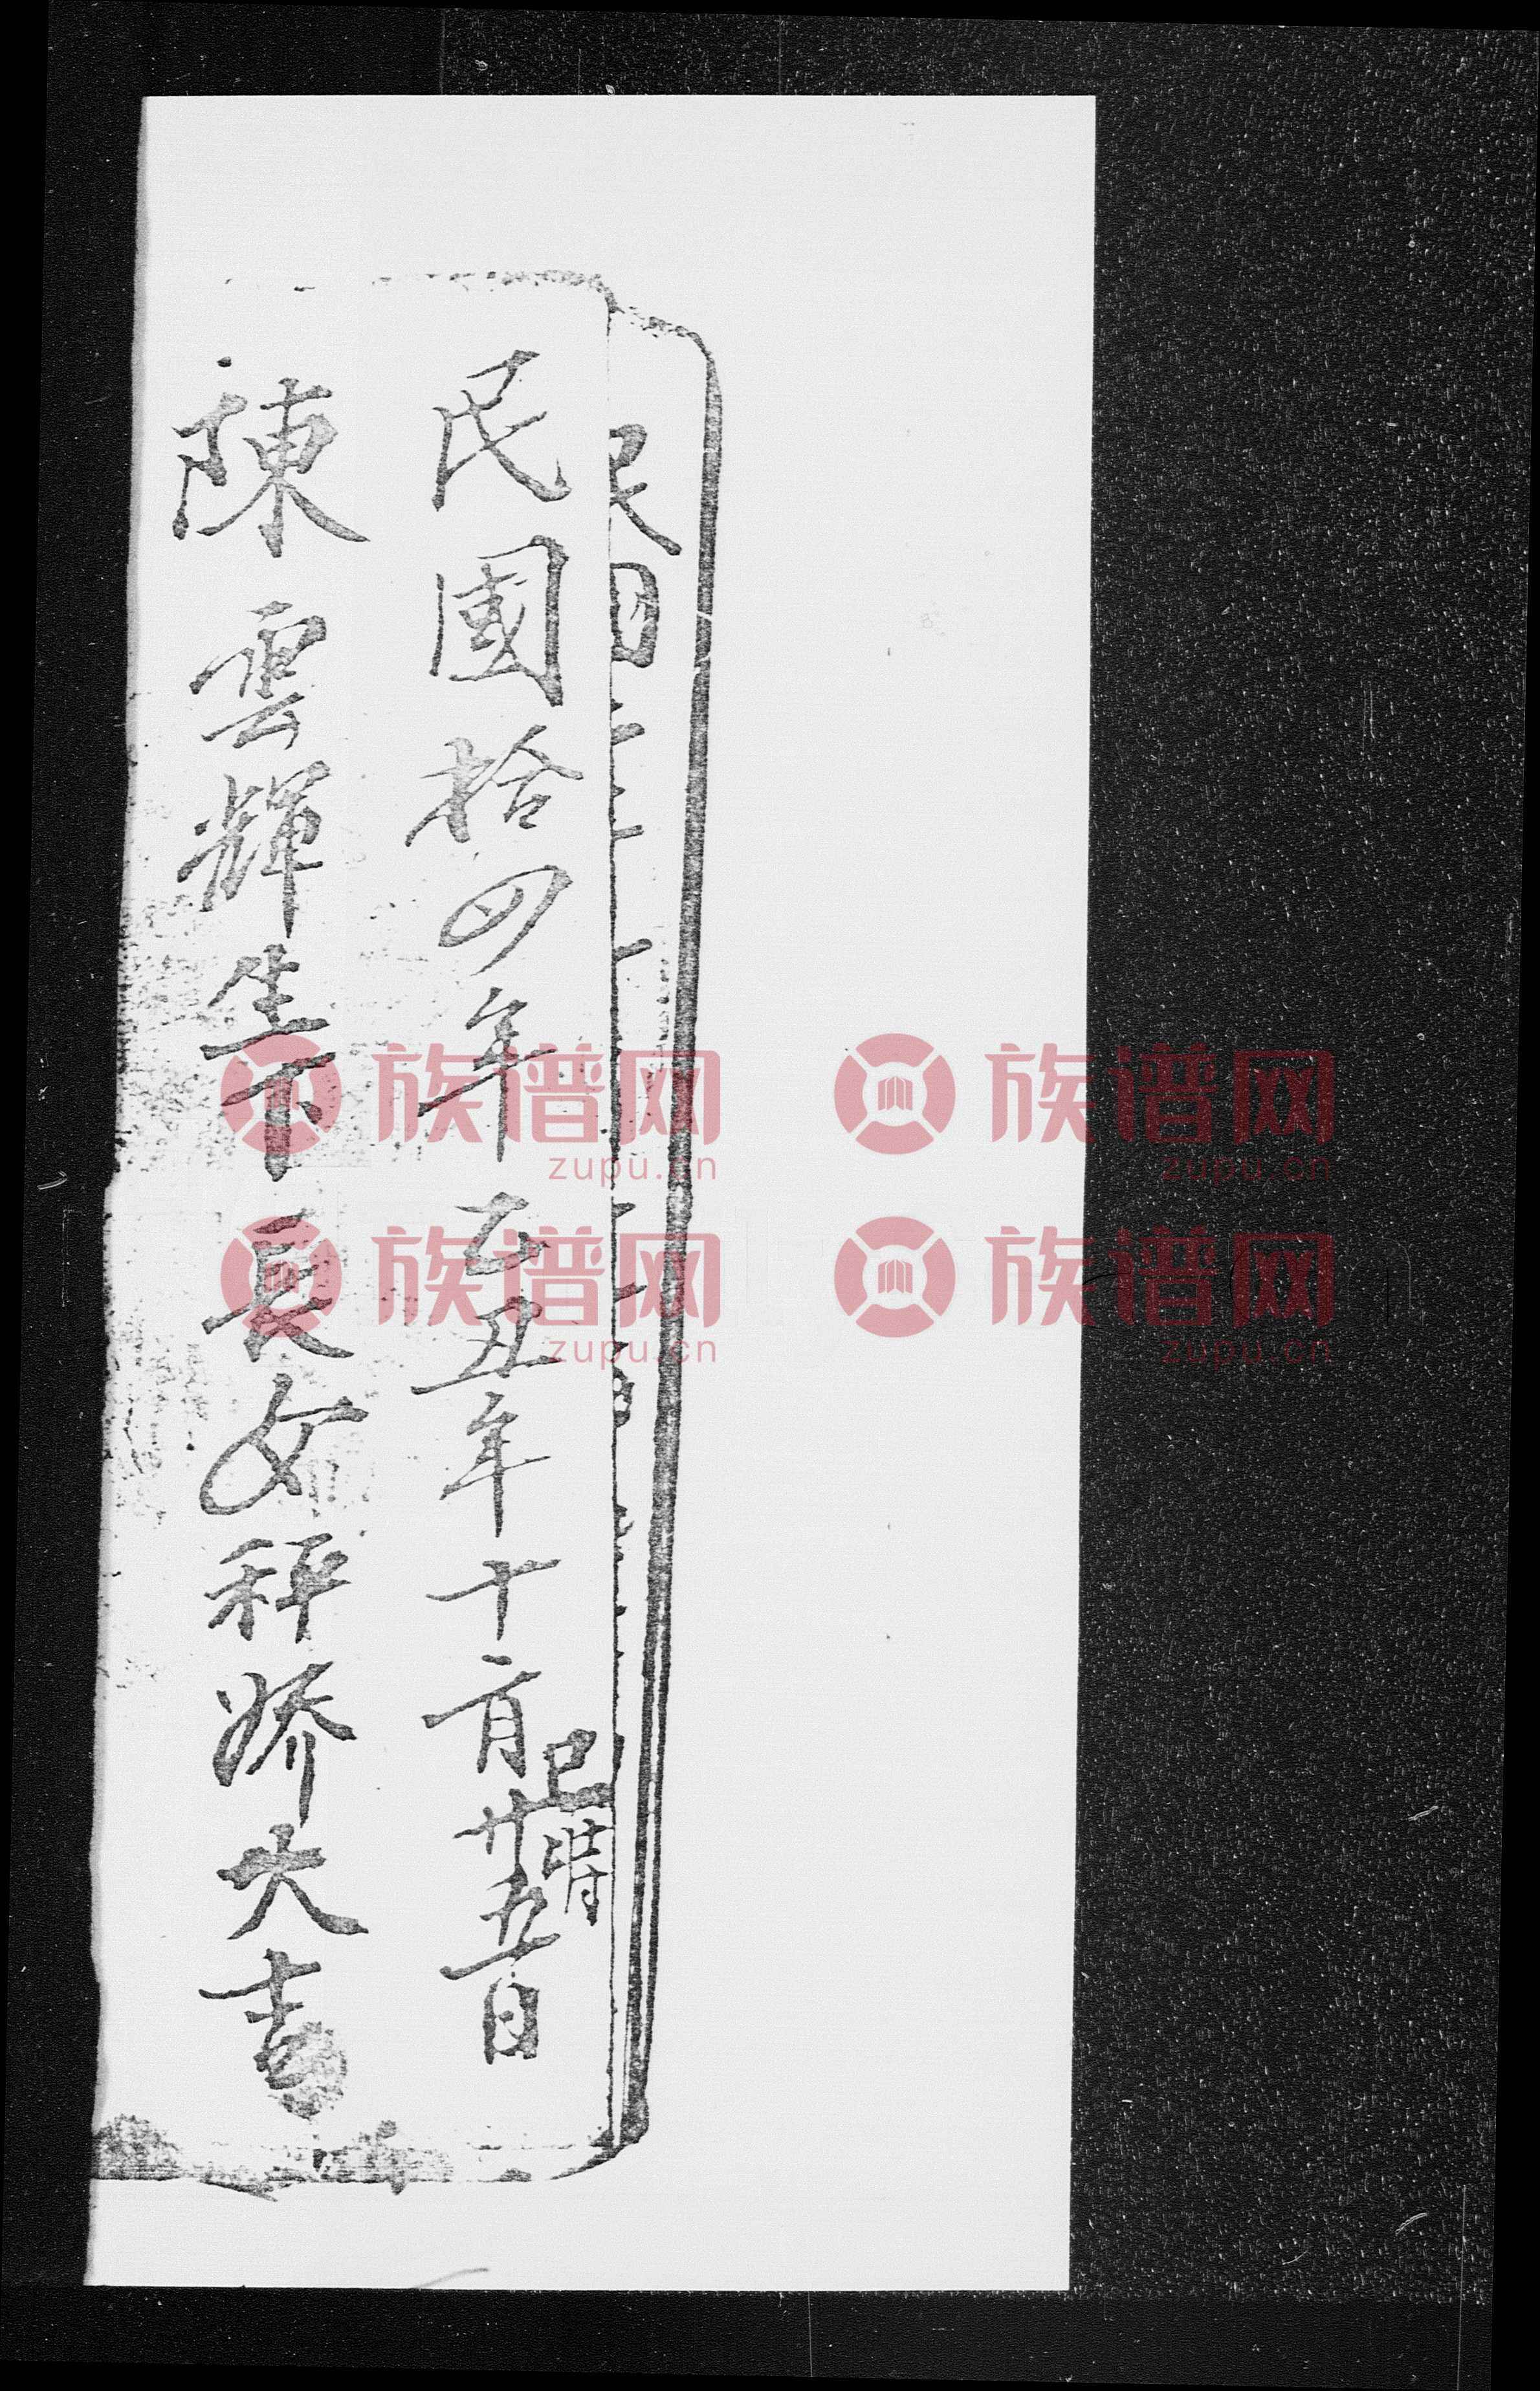 民國
民國拾四年乙丑年十二月廿五日
巳時
陳雲輝生下長女秤娇大吉
族谱网
zupu.cn
族谱网
zupu.cn
族谱网
zupu.cn
族谱网
zupu.cn